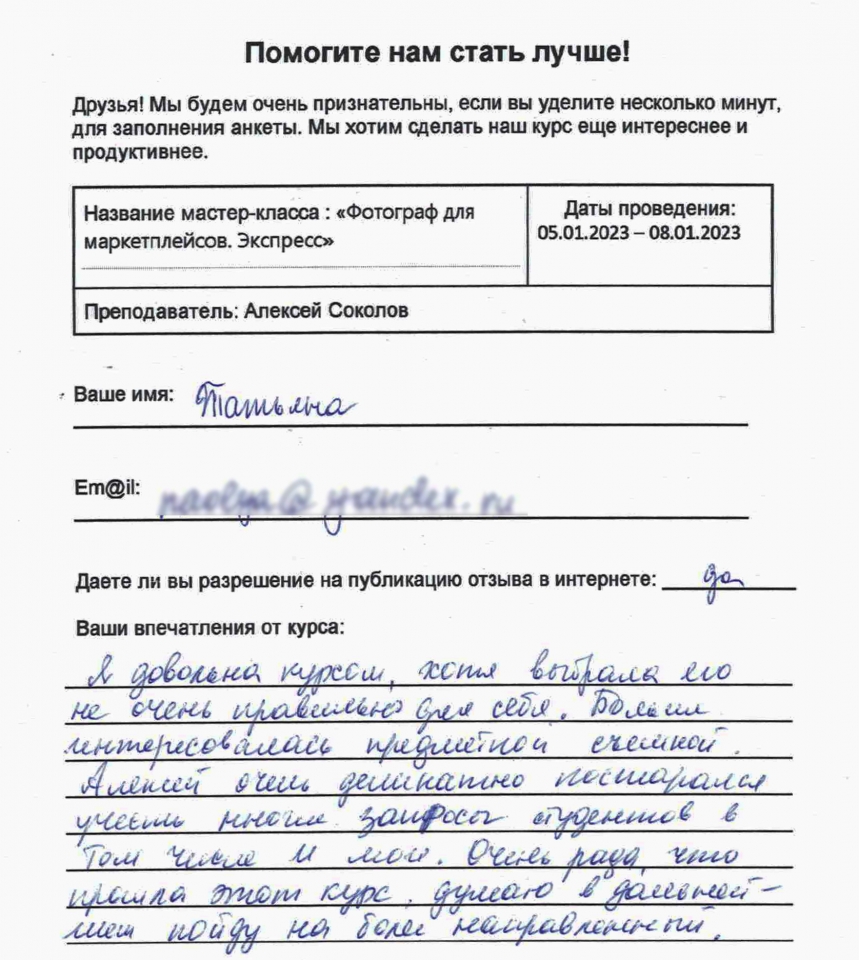 Помогите нам стать лучше!
Друзья! Мы будем очень признательны, если вы уделите несколько минут,
для заполнения анкеты. Мы хотим сделать наш курс еще интереснее и
продуктивнее.
Название мастер-класса : «Фотограф для
маркетплейсов. Экспресс»
Даты проведения:
05.01.2023 – 08.01.2023
Преподаватель: Алексей Соколов
Ваше имя: Татьяна
Em@il:
Даете ли вы разрешение на публикацию отзыва в интернете: да
Ваши впечатления от курса:
Я довольна курсом, хотя выбрала его
не очень правильно для себя. Больше
интересовалась предметной съемкой.
Алексей очень деликатно постарался
учесть многие запросы студентов в
том числе и мои. Очень рада, что
прошла этот курс, думаю в дальней-
шем пойду на более направленный.